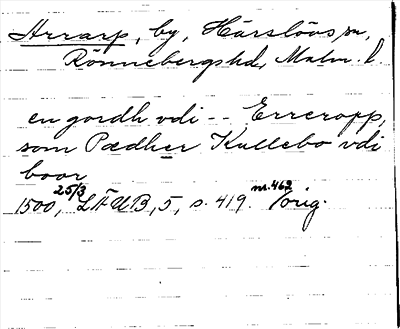 Arrarp, by, Härslövs sn,
Rönnebergs hd, Malm. l.
en gordh vdi -- Erreropp,
som Pædher Kullebo vdi
boor
1500 25/3, LÄUB, 5, s. 419. nr. 462 /orig.